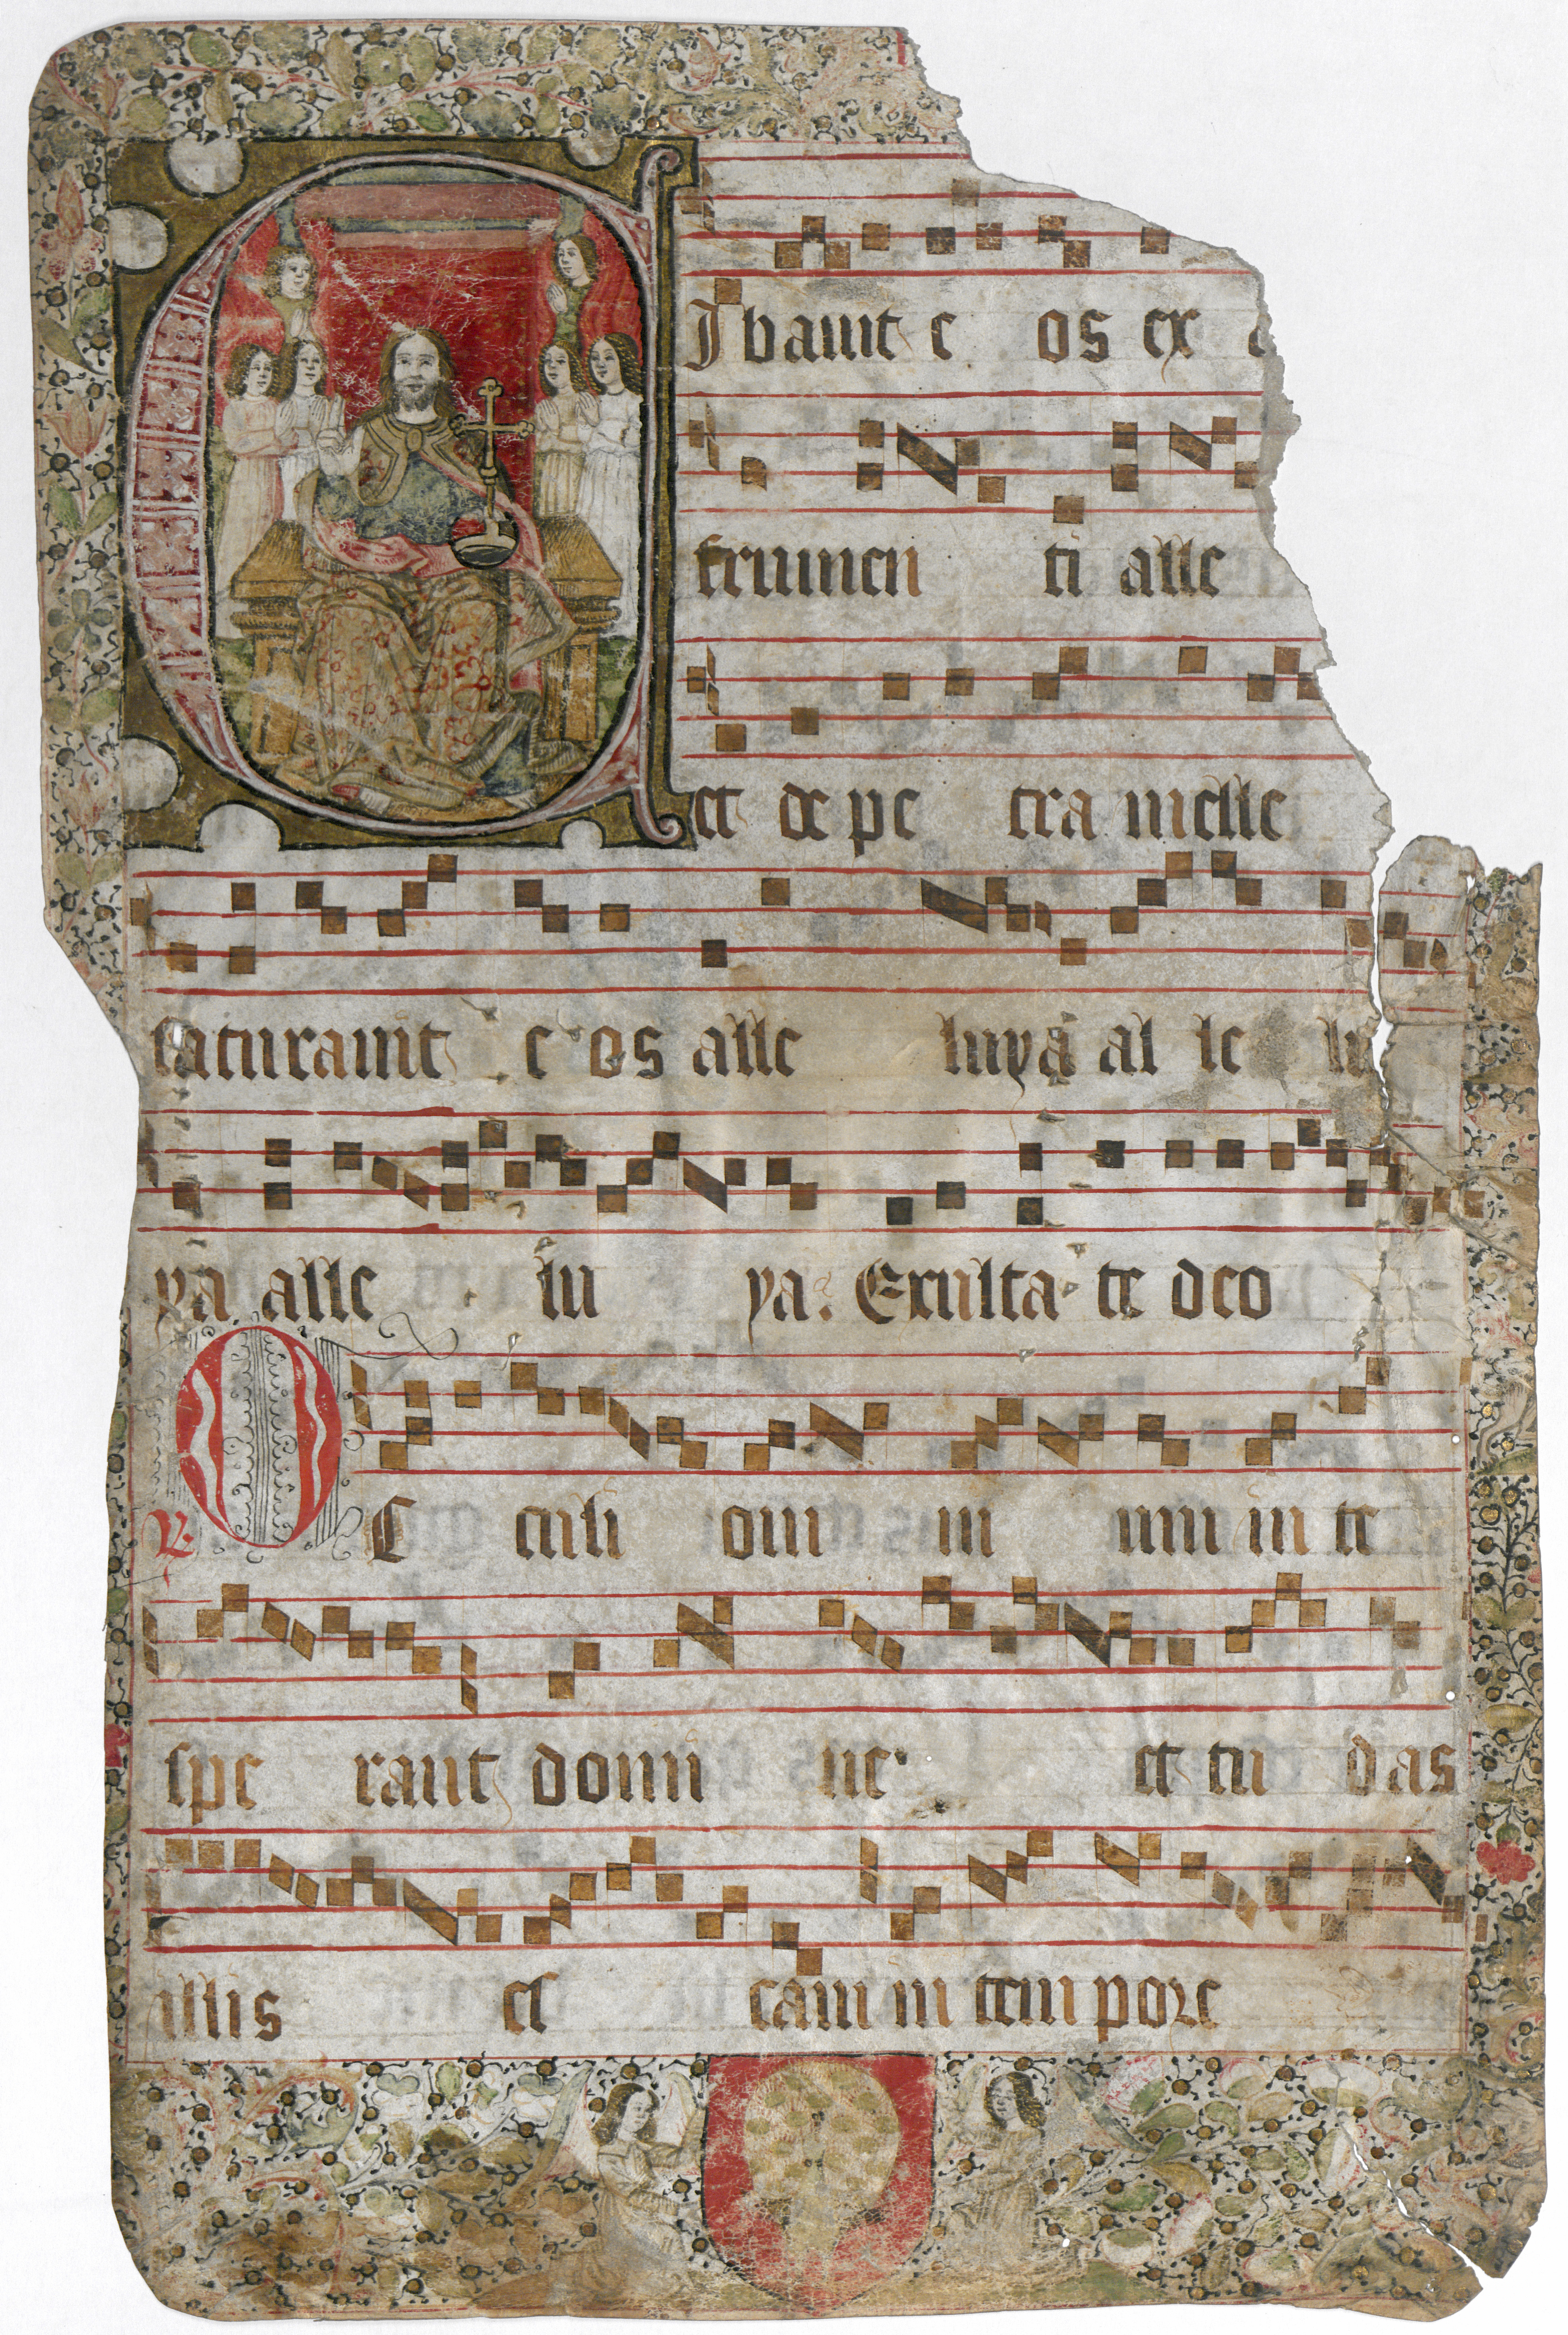 CIbauit e os ex a
frumen ti alle
et de pe tra melle
saturauit e os alle luya al le lu
ya alle lu ya. Exulta te deo
℟ OC culi om ni um in te
spe rant domi ne et tu das
illis es cam in tem pore